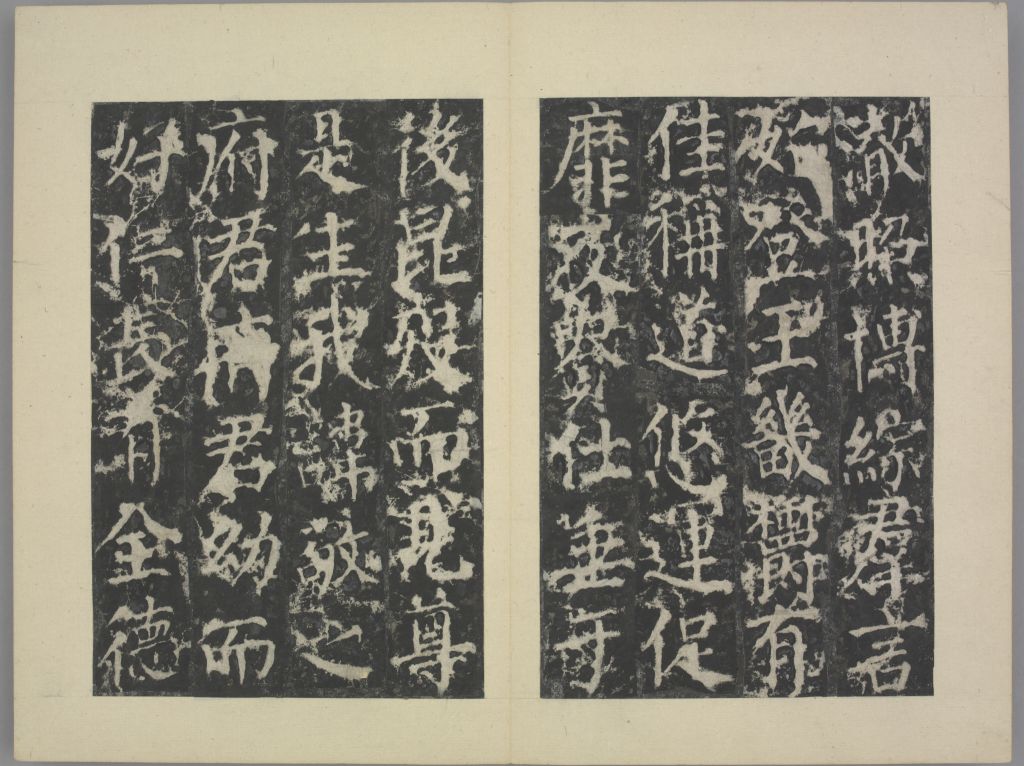 澈照博綜群言
始登王畿鬱有
佳稱道悠運促
靡及貴仕垂于
後昆歿而見尊
是生我諱敬之
府君府君幼而
好仁長有全德